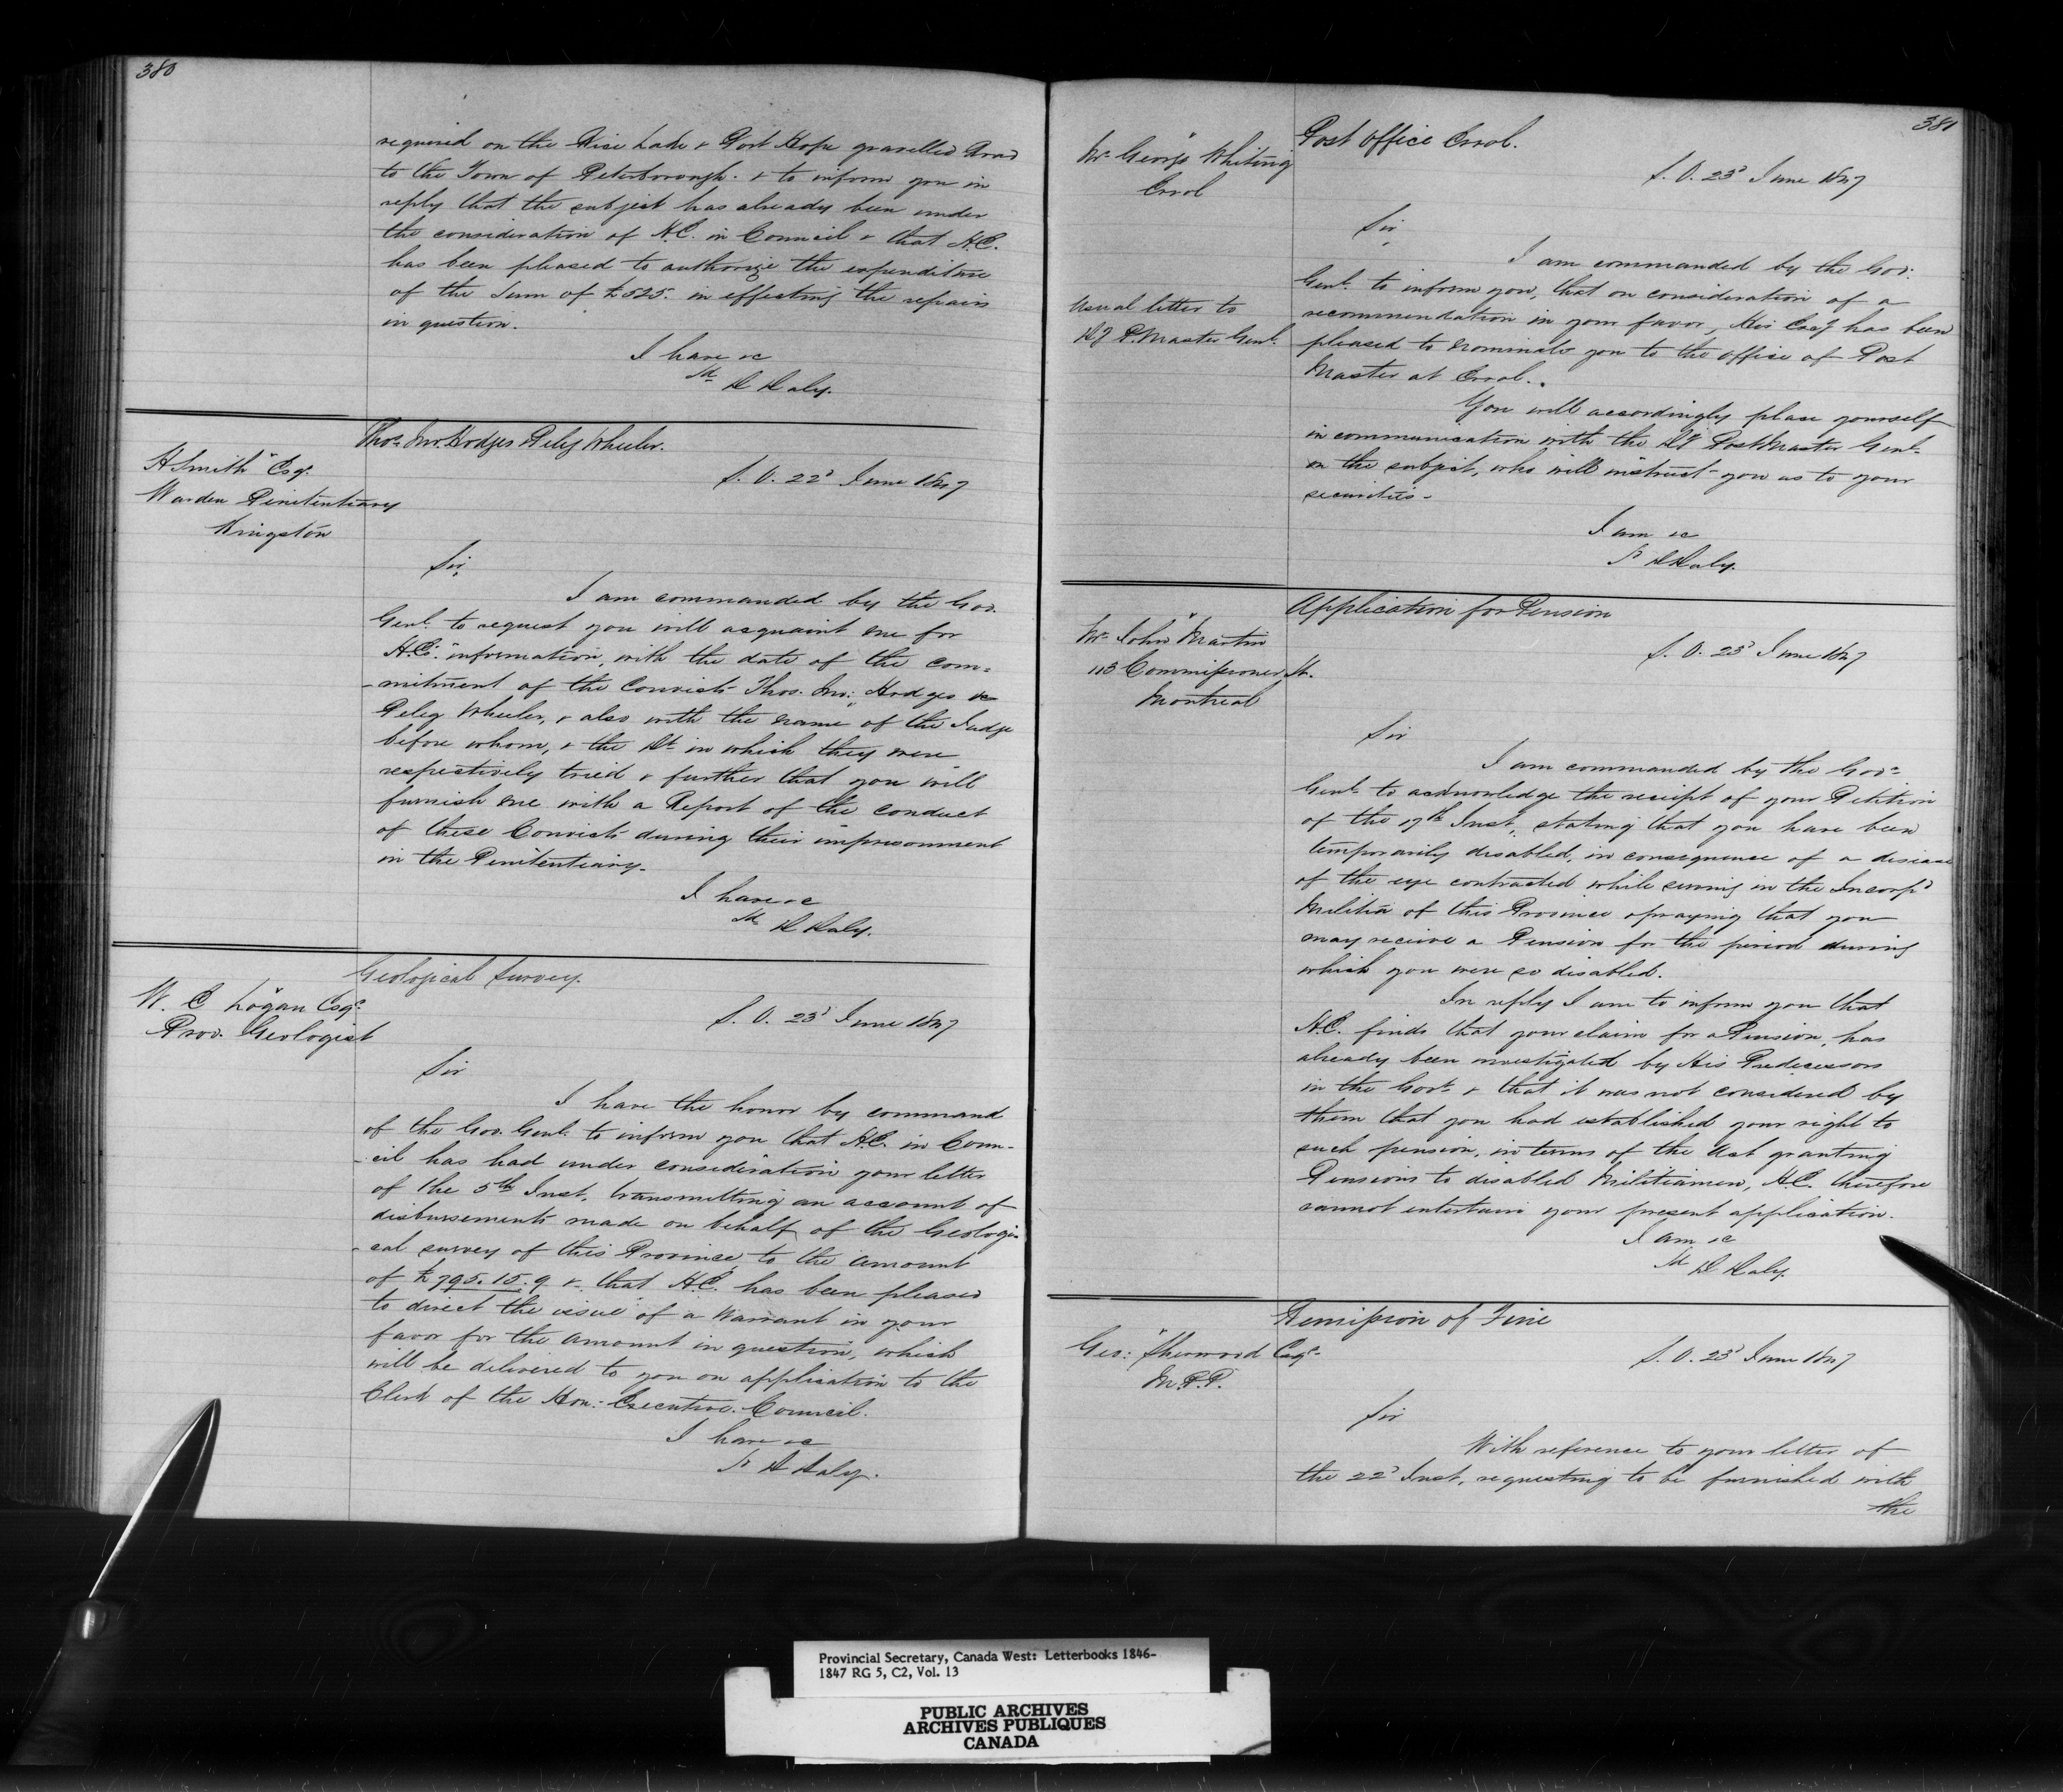 380
required on the Rice Lake & Port Hope gravelled Road
to the Town of Peterborough. & to inform you in
reply that the subject has already been under
the consideration of H.E. in Council & that H.E.
has been pleased to authorize the expenditure
of the Sum of £525. in effecting the repairs
in question.
I have &c
Sd D Daly.
Thos. Jno. Hodges & Peleg Wheeler.
H Smith Esqr.
Warden Penitentiary
Kingston
S. O. 22d June 1847
Sir,
I am commanded by the Gov.
Genl. to request you will acquaint me for
H.E's. information, with the date of the com-
-mitment of the Convicts Thos. Jno: Hodges &
Peleg Wheeler, & also with the name of the Judge
before whom, & the Dt. in which they were
respectively tried & further that you will
furnish me with a Report of the conduct
of these Convicts during their imprisonment
in the Penitentiary.
I have &c
Sd D Daly.
Geological Survey.
W. E Logan Esqr.
Prov. Geologist
S. O. 23d June 1847
Sir
I have the honor by command
of the Gov. Genl. to inform you that H.E. in Coun-
-cil has had under consideration your letter
of the 5th Inst. transmitting an account of
disbursements made on behalf of the Geologi-
-cal survey of this Province, to the amount
of £795.15.9 & that H.E. has been pleased
to direct the issue of a Warrant in your
favor for the amount in question, which
will be delivered to you on application to the
Clerk of the Hon: Executive Council.
I have &c
Sd D Daly.
381
Post Office Errol.
Mr. George Whiting
Errol
S. O. 23d June 1847
Sir,
I am commanded by the Gov.
Genl. to inform you, that on consideration of a
recommendation in your favor, His Excy has been
pleased to nominate you to the office of Post
Master at Errol.
Usual letter to
Dy P. Master Genl.
You will accordingly place yourself
in communication with the Dy PostMaster Genl.
on the subject, who will instruct you as to your
securities.
I am &c
Sd D Daly.
Application for Pension
Mr. John Martin
113 Commissioner St.
Montreal
S. O. 23d June 1847
Sir
I am commanded by the Govr.
Genl. to acknowledge the receipt of your Petition
of the 17th Inst., stating that you have been
temporarily disabled, in consequence of a disease
of the eye contracted while serving in the Incorpd
Militia of this Province & praying that you
may receive a Pension for the period during
which you were so disabled.
In reply I am to inform you that
H.E. finds that your claim for a Pension, has
already been investigated by His Predecessors
in the Govt. & that it was not considered by
them that you had established your right to
such pension, in terms of the Act granting
Pensions to disabled Militiamen, H.E. therefore
cannot entertain your present application.
I am &c
Sd D Daly.
Remission of Fine
Geo: Sherwood Esqr.
M.P.P.
S. O. 23d June 1847
Sir
With reference to your letter of
the 22d Inst. requesting to be furnished with
the
Provincial Secretary, Canada West: Letterbooks 1846-
1847 RG 5, C2, Vol. 13
PUBLIC ARCHIVES
ARCHIVES PUBLIQUES
CANADA